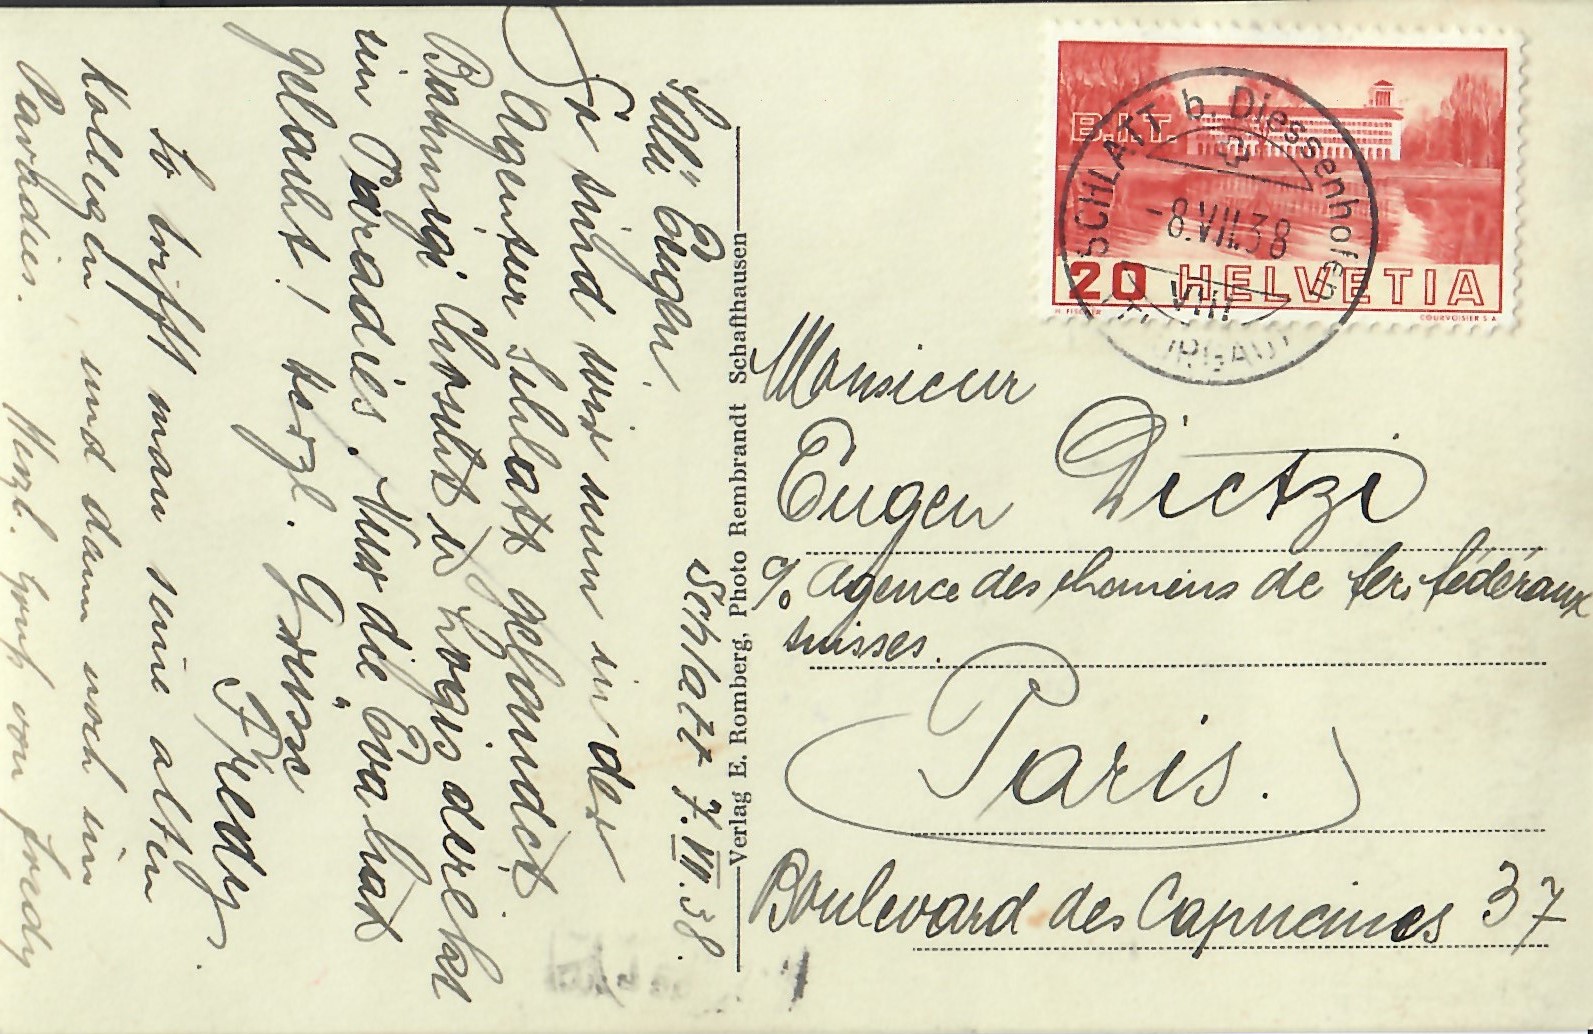 Schlatt 7.VII.38.
Salü Eugen.
So sind wir nun in der
Agentur Schlatt gelandet
Bahnigi Choscht u Logis derekt
im Paradies. Nur die Eva hat
gefählt! herzl. Grüsse
Fredy.
So trifft man seine alten
Kollegen, und dann noch im
Parhdies. Herzl. Gruss von Fredy
Verlag E. Romberg, Photo Rembrandt Schaffhausen
B.I.T.
20 HELVETIA
H. FISCHER
COURVOISIER S.A.
SCHLATT b. Diessenhofen
-8.VII.38
VIII
(THURGAU)
Monsieur
Eugen Dietzi
c/o Agence des chemins de fers fédéraux
suisses.
Paris.
Boulevard des Capucines 37